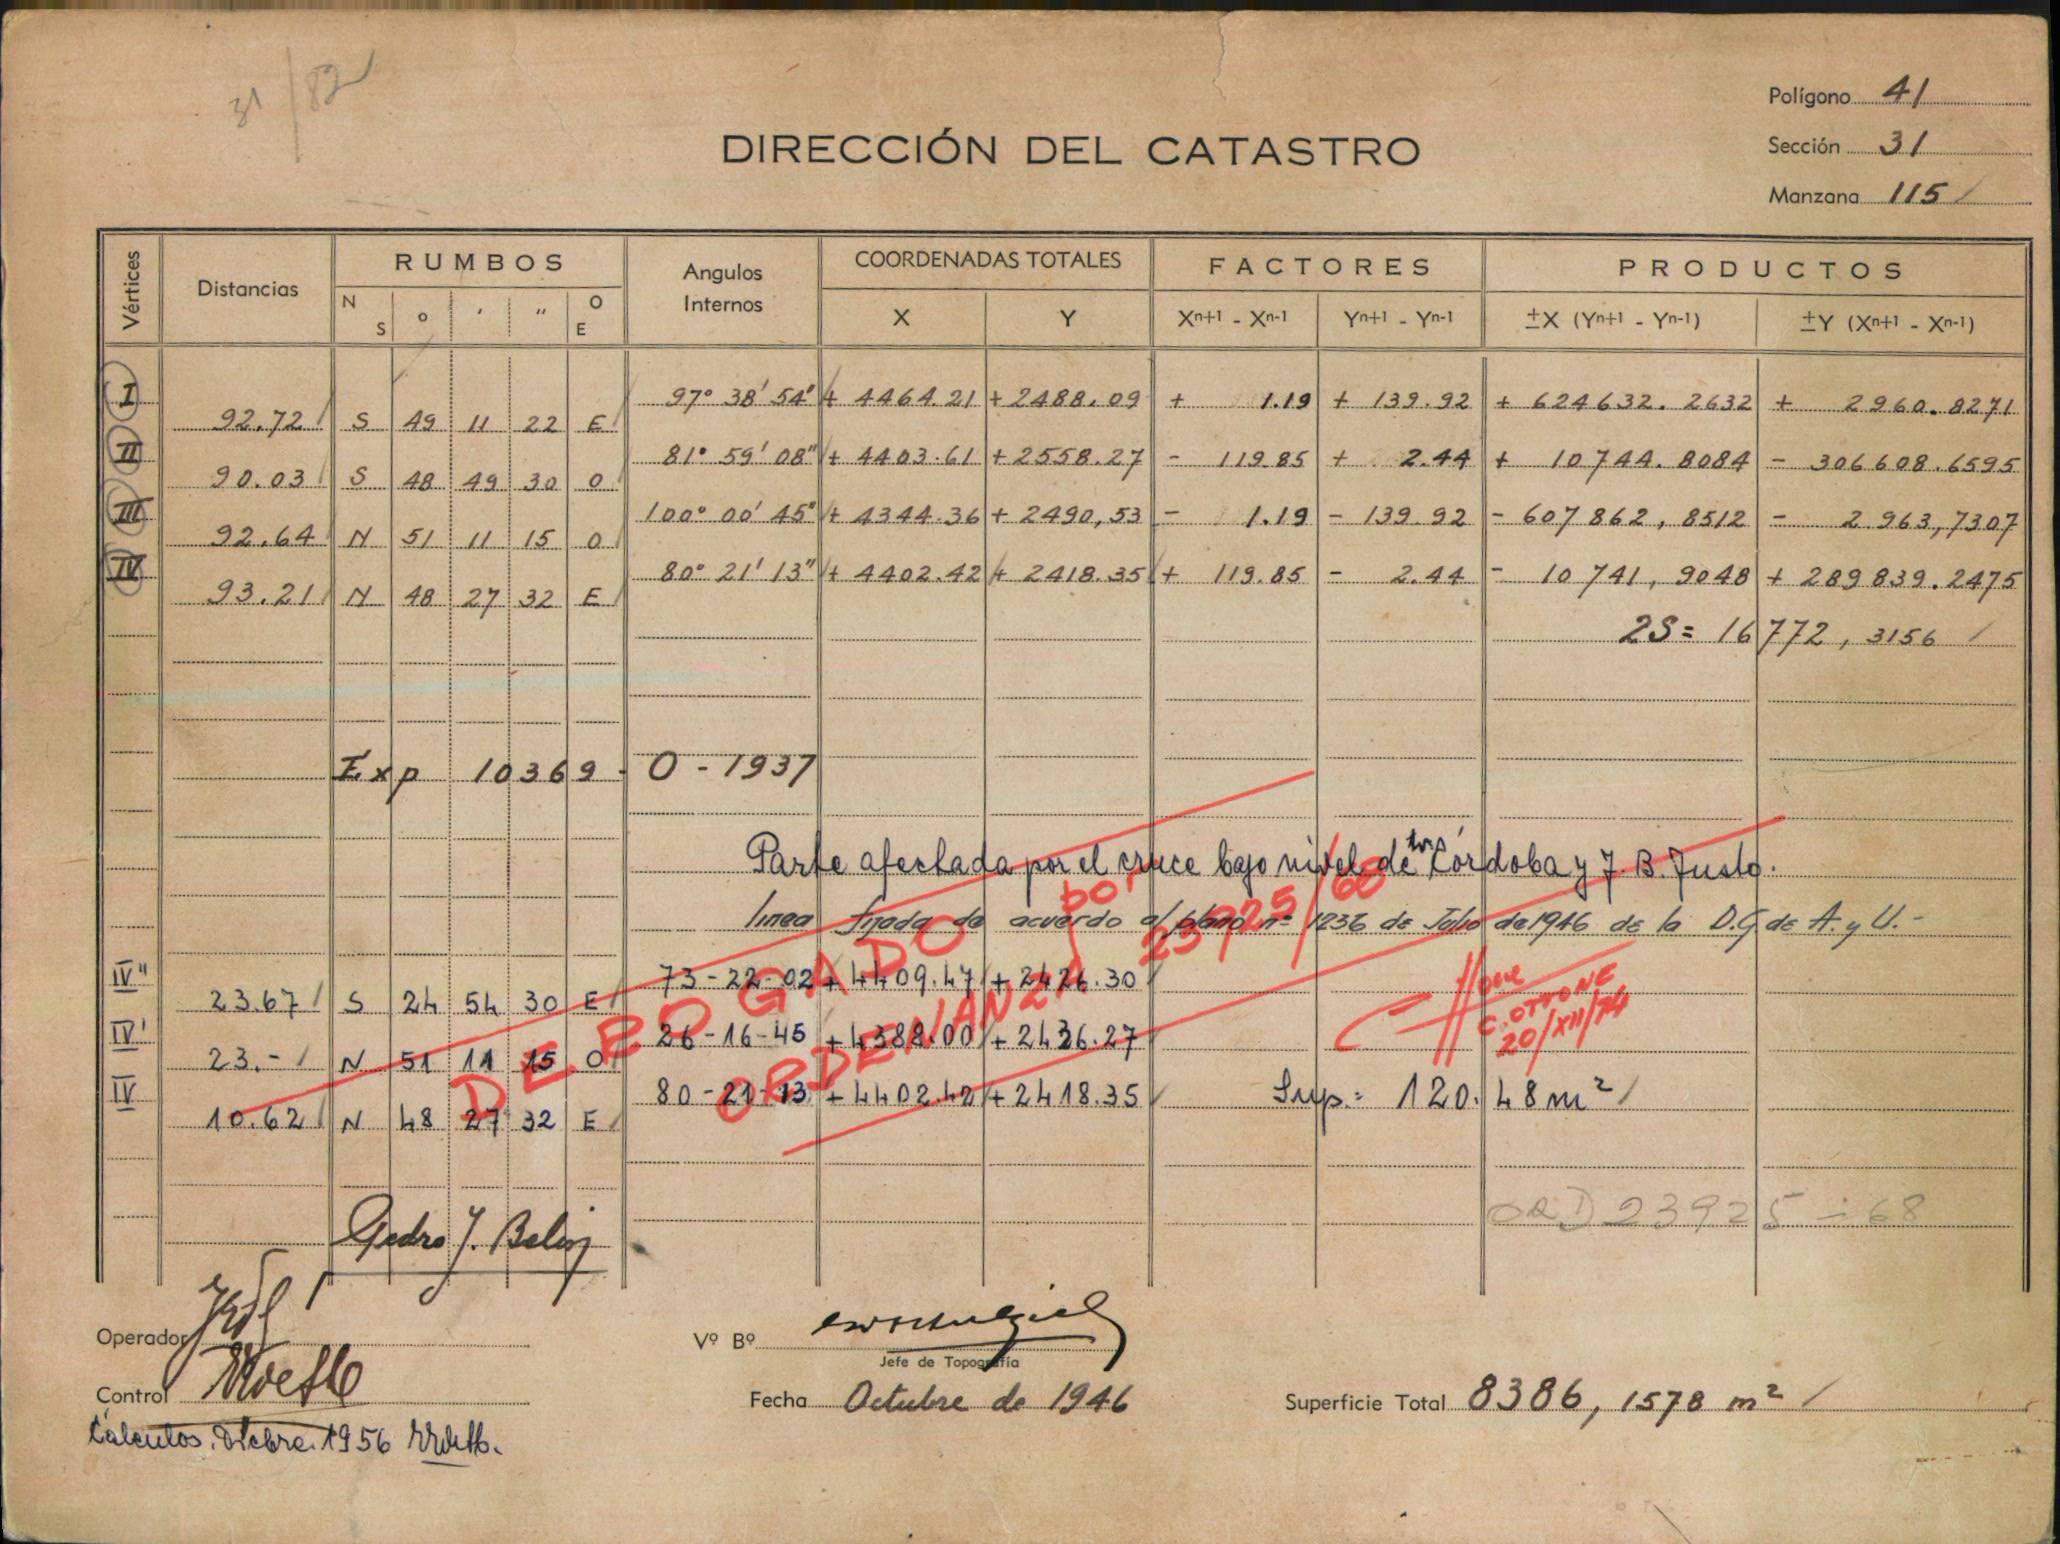 31/82
Polígono 41
DIRECCIÓN DEL CATASTRO
Sección 31
Manzana 115
Vértices Distancias RUMBOS Angulos Internos COORDENADAS TOTALES FACTORES PRODUCTOS
N S ° ' " O E X Y Xn+1 - Xn-1 Yn+1 - Yn-1 ±X (Yn+1 - Yn-1) ±Y (Xn+1 - Xn-1)
I 97° 38' 54" + 4464.21 + 2488.09 + 1.19 + 139.92 + 624632.2632 + 2960.8271
92.72 S 49 11 22 E
II 81° 59' 08" + 4403.61 + 2558.27 - 119.85 + 2.44 + 10744.8084 - 306608.6595
90.03 S 48 49 30 O
III 100° 00' 45" + 4344.36 + 2490,53 - 1.19 - 139.92 - 607862,8512 - 2963,7307
92.64 N 51 11 15 O
IV 80° 21' 13" + 4402.42 + 2418.35 + 119.85 - 2.44 - 10741,9048 + 289839.2475
93.21 N 48 27 32 E
2S = 16772,3156
Exp 10369 - O - 1937
Parte afectada por el cruce bajo nivel de Córdoba y J. B. Justo.
linea fijada de acuerdo al plano nº 1236 de Julio de 1946 de la D.G. de A. y U.-
DEROGADO por
ORDENANZA 23925/68
IV" 73-22-02 + 4409.47 + 2426.30
23.67 S 24 54 30 E
IV' 26-16-45 + 4388.00 + 2436.27
23.- N 51 11 15 O
IV 80-21-13 + 4402.42 + 2418.35
10.62 N 48 27 32 E
C. OTTONE
20/XII/74
Sup.= 120.48 m²
ORD 23925 - 68
Pedro J. Belin
Operador
Vº Bº
Jefe de Topografía
Control
Fecha Octubre de 1946
Superficie Total 8386,1578 m²
Cálculos. Dicbre. 1956